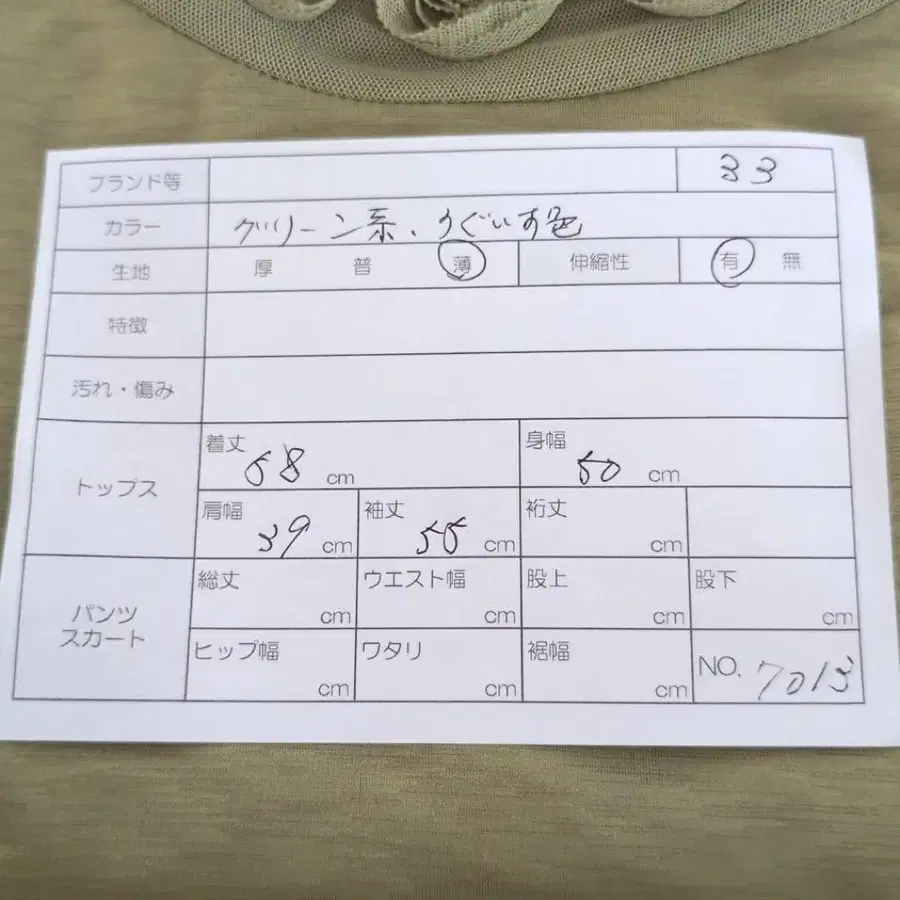 ブランド等 33
カラー グリーン系、うぐいす色
生地 厚 普 薄 伸縮性 有 無
特徴
汚れ・傷み
トップス
着丈 58 cm 身幅 50 cm
肩幅 39 cm 袖丈 55 cm 裄丈 cm
パンツ
スカート
総丈 cm ウエスト幅 cm 股上 cm 股下 cm
ヒップ幅 cm ワタリ cm 裾幅 cm NO. 7013